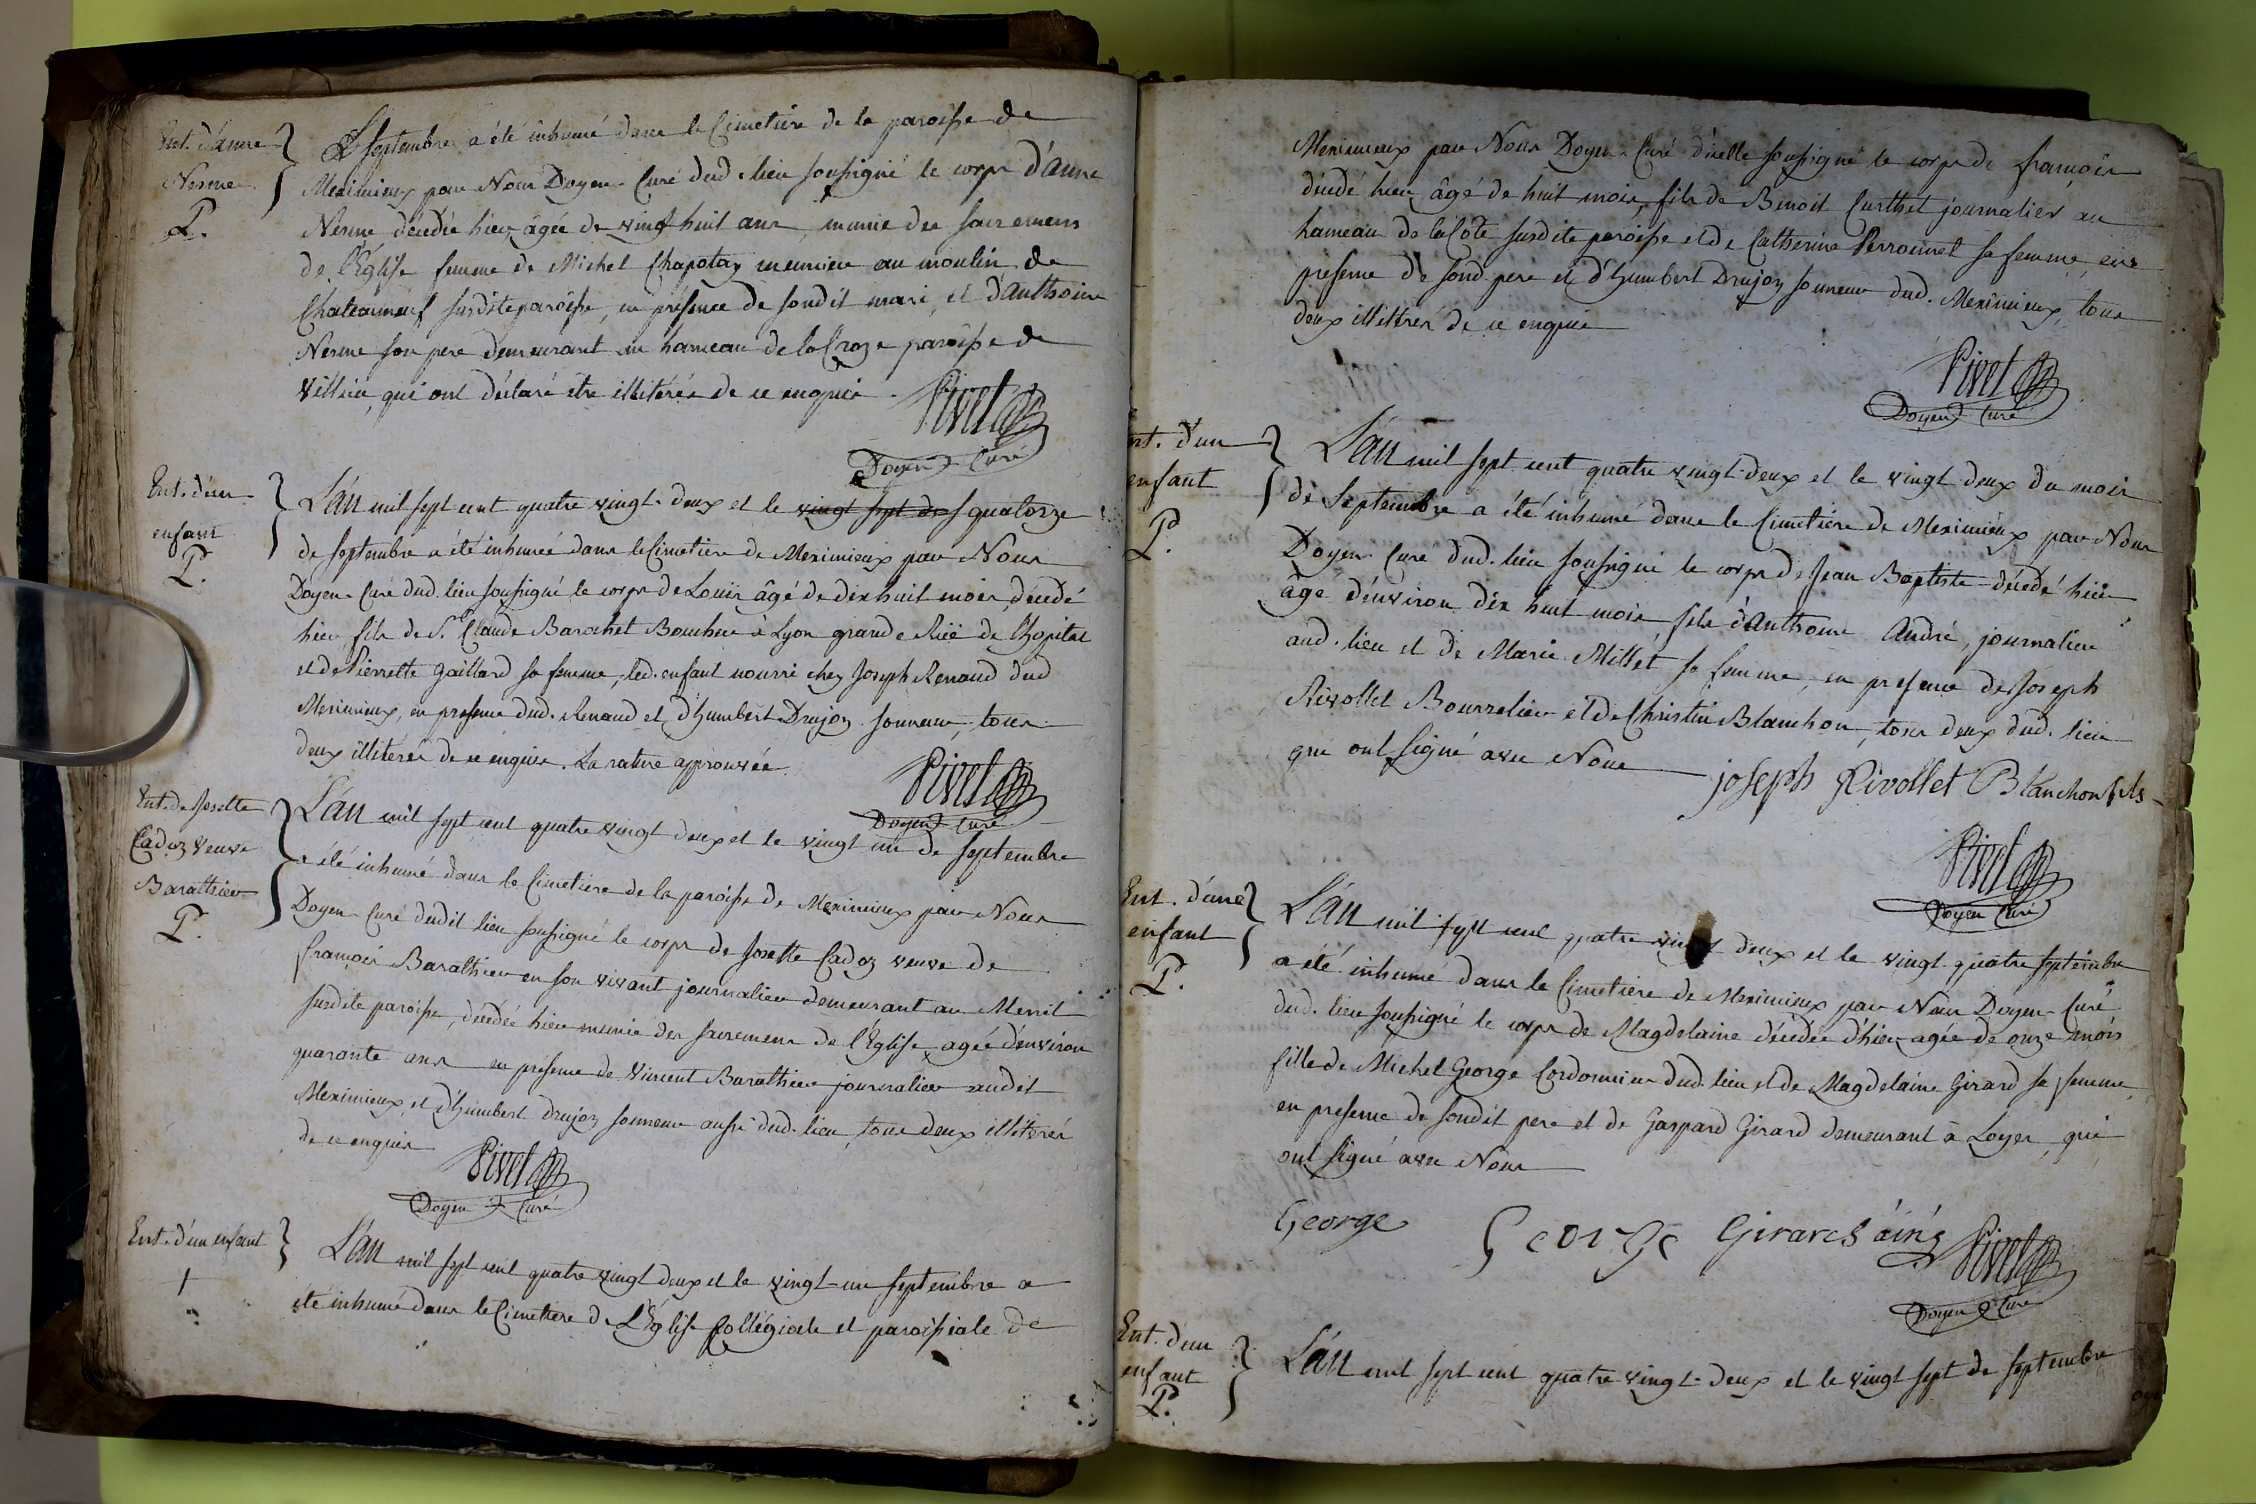 Ent. d'anne
Nesme
P.
septembre a été inhumé dans le Cimetiere de la paroisse de
Meximieux par Nous Doyen-Curé dud. lieu soussigné le corps d'anne
Nesme décédée hier, âgée de vingt huit ans, munie des sacremens
de l'Eglise femme de Michel Chapotay meunier au moulin de
Chateauneuf susdite paroisse, en présence de sondit mari, et d'Anthoine
Nesme son pere demeurant au hameau de la Croze paroisse de
Villieu, qui ont déclaré être illitérés de ce enquis
Pivet
Doyen-Curé
Ent. d'un
enfant
P.
L'an mil sept cent quatre vingt-deux et le vingt sept de quatorze
de septembre a été inhumée dans le Cimetiere de Meximieux par Nous
Doyen-Curé dud. lieu soussigné le corps de Louis âgé de dix huit mois, décédé
hier fils de Sr Claude Barochet Boucher à Lyon grande Rüe de l'hopital
et de Pierrette Gaillard sa femme, led. enfant nourri chez Joseph Renaud dud
Meximieux, en presence dud. Renaud et d'humbert Drujon sonneur, tous
deux illiterés de ce enquis. La rature approuvée.
Pivet
Doyen-Curé
Ent. de Josette
Cadoz veuve
Barathier
P.
L'an mil sept cent quatre vingt deux et le vingt un de septembre
a été inhumé dans le Cimetiere de la paroisse de Meximieux par Nous
Doyen-Curé dudit lieu soussigné le corps de Josette Cadoz veuve de
françois Barathier en son vivant journalier demeurant au
susdite paroisse, décédée hier munie des sacremens de l'Eglise, agée d'environ
quarante ans en présence de Vincent Barathier journalier audit
Meximieux, et d'humbert drujon sonneur aussi dud. lieu, tous deux illitérés
de ce enquis
Pivet
Doyen-Curé
Ent. d'un enfant
L'an mil sept cent quatre vingt deux et le vingt-un septembre a
été inhumé dans le Cimetiere de l'Eglise Collégiale et paroissiale de
Meximieux par Nous Doyen-Curé d'icelle soussigné le corps de françois
décédé hier âgé de huit mois, fils de Benoit Curthet journalier au
hameau de la Côte susdite paroisse et de Catherine Perrounet sa femme, en
presence de sond. pere et d'humbert Drujon sonneur dud. Meximieux, tous
deux illittrés de ce enquis
Pivet
Doyen-Curé
ent. d'un
enfant
P.
L'an mil sept cent quatre vingt-deux et le vingt deux du mois
de Septembre a été inhumé dans le Cimetiére de Meximieux par Nous
Doyen-Curé dud. lieu soussigné le corps de Jean Baptiste décédé hier
âgé d'environ dix huit mois fils d'Anthoine André, journalier
aud. lieu et de Marie Millet sa femme, en presence de Joseph
Rivollet Bourrelier et de Christin Blanchon, tous deux dud. lieu
qui ont signé avec Nous
joseph Rivollet Blanchon fils
Pivet
Doyen Curé
Ent. d'une
enfant
P.
L'an mil sept cent quatre vingt deux et le vingt-quatre septembre
a été inhumé dans le Cimetiere de Meximieux par Nous Doyen-Curé
dud. lieu soussigné le corps de Magdelaine décédée d'hier agée de onze mois
fille de Michel George Cordonnier dud. lieu et de Magdelaine Girard sa femme,
en presence de sondit pere et de Gaspard Girard demeurant à Loyes, qui
ont signé avec Nous
George George Girard ainé Pivet
Doyen Curé
Ent. d'un
enfant
P.
L'an mil sept cent quatre vingt-deux et le vingt sept de septembre